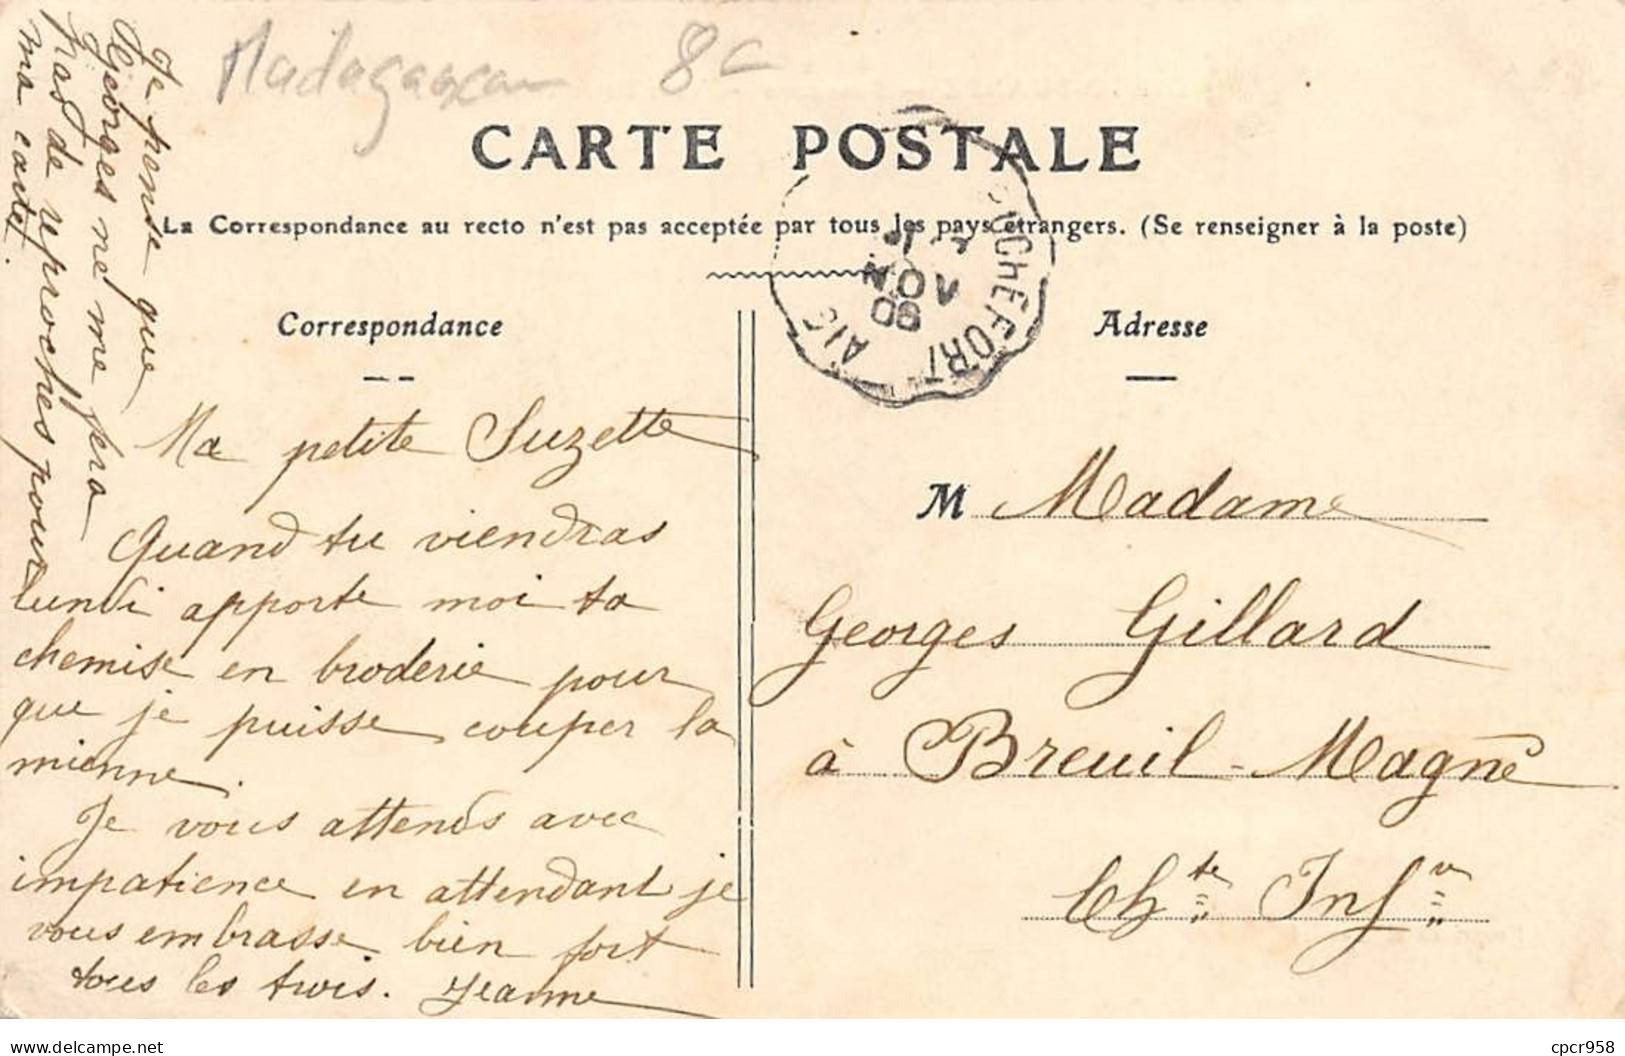 Madagascar 8c
CARTE POSTALE
La Correspondance au recto n'est pas acceptée par tous les pays étrangers. (Se renseigner à la poste)
Correspondance
Ma petite Suzette
Quand tu viendras
lundi apporte moi ta
chemise en broderie pour
que je puisse couper la
mienne.
Je vous attends avec
impatience en attendant je
vous embrasse bien fort
tous les trois. Jeanne
Je pense que
Georges ne me fera
pas de reproches pour
ma carte.
Adresse
M Madame
Georges Gillard
à Breuil-Magné
Chte Infre
ROCHEFORT
AOU
06
delcampe.net
cpcr958